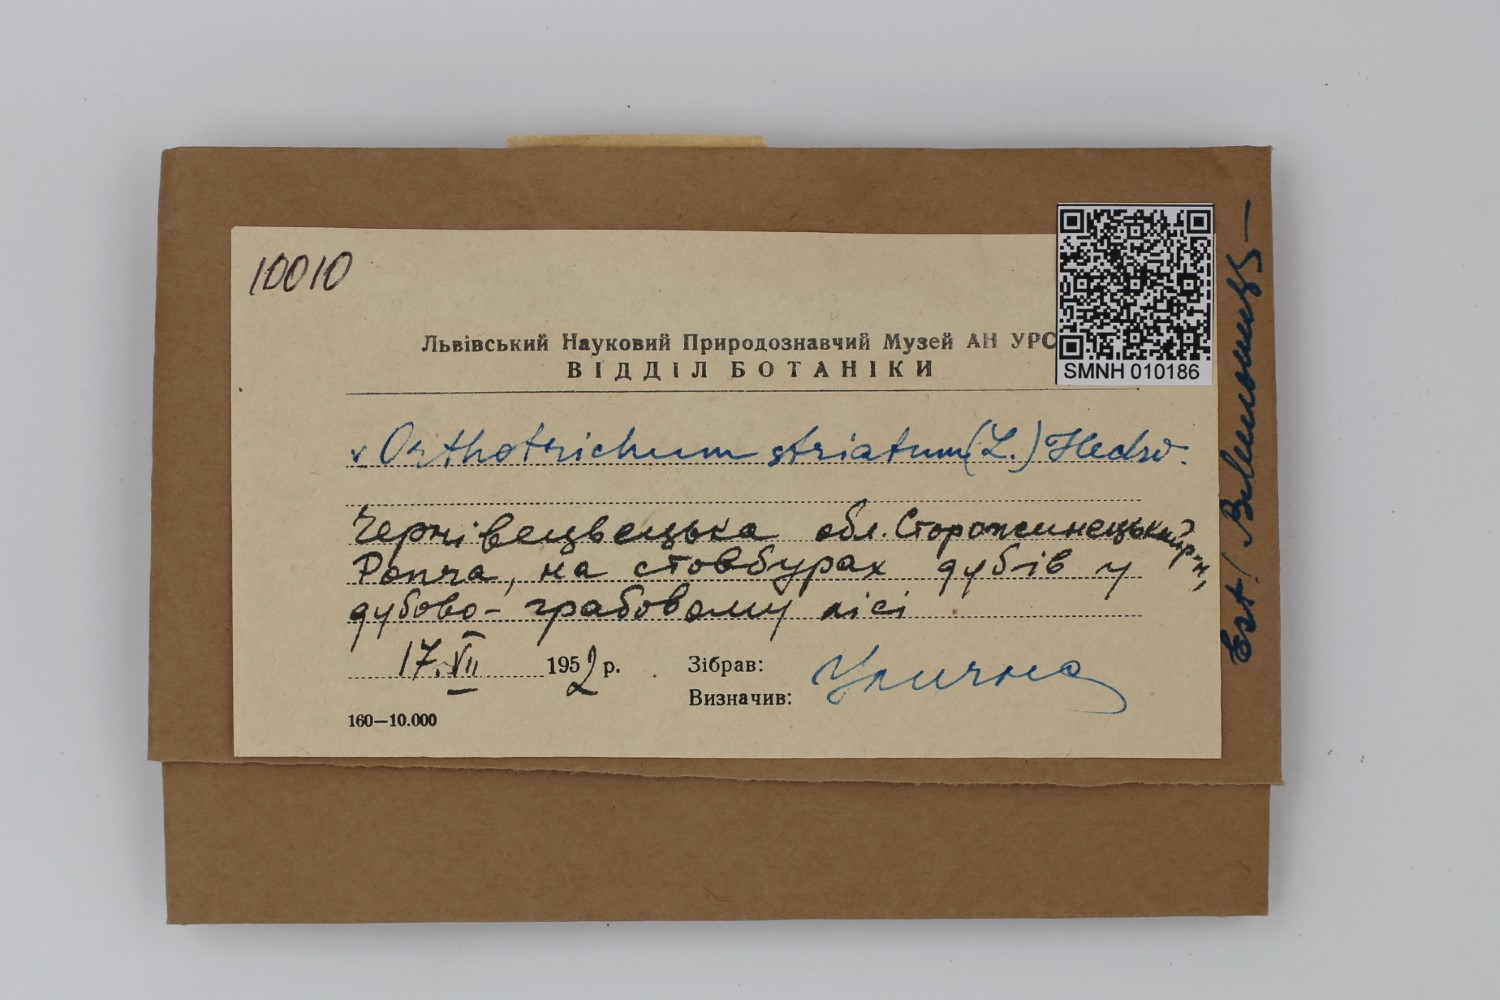 10010
Львівський Науковий Природознавчий Музей АН УРС
ВІДДІЛ БОТАНІКИ
SMNH 010186
v Orthotrichum striatum (L.) Hedw.
Чернівецвецька обл. Сторожинецький р-н,
Ропча, на стовбурах дубів у
дубово-грабовому лісі
17.VII 1952 р.
Зібрав: Улична
Визначив:
160—10.000
Est!